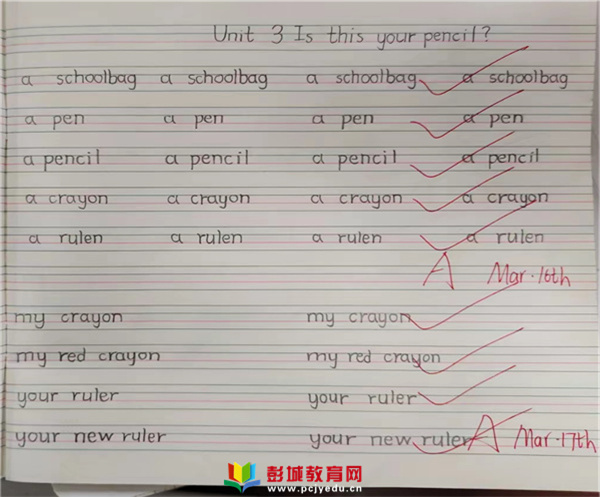 Unit 3 Is this your pencil?
a schoolbag a schoolbag a schoolbag a schoolbag
a pen a pen a pen a pen
a pencil a pencil a pencil a pencil
a crayon a crayon a crayon a crayon
a rulen a rulen a rulen a rulen
A Mar.16th
my crayon my crayon
my red crayon my red crayon
your ruler your ruler
your new ruler your new ruler A Mar.17th
彭城教育网
www.pcjyedu.cn